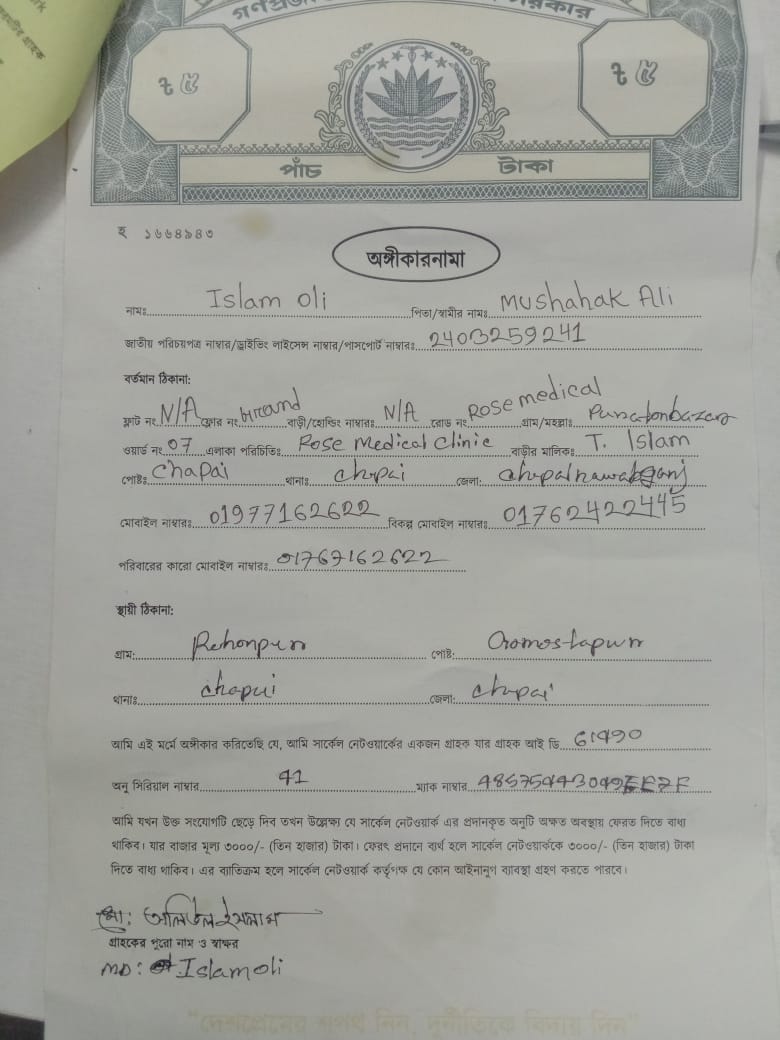 ৳ ৫
৳ ৫
পাঁচ টাকা
হ ১৬৬৪৯৪৩
অঙ্গীকারনামা
নামঃ Islam Oli পিতা/স্বামীর নামঃ Mushahak Ali
জাতীয় পরিচয়পত্র নাম্বার/ড্রাইভিং লাইসেন্স নাম্বার/পাসপোর্ট নাম্বারঃ 2403259241
বর্তমান ঠিকানা:
ফ্লাট নং N/A ফ্লোর নং বাড়ী/হোল্ডিং নাম্বারঃ N/A রোড নং Rose medical গ্রাম/মহল্লাঃ Puratonbazar
ওয়ার্ড নং 07 এলাকা পরিচিতিঃ Rose Medical Clinic বাড়ীর মালিকঃ T. Islam
পোষ্টঃ Chapai থানাঃ Chapai জেলা: Chapainawabganj
মোবাইল নাম্বারঃ 01977162622 বিকল্প মোবাইল নাম্বারঃ 01762422445
পরিবারের কারো মোবাইল নাম্বারঃ 01767162622
স্থায়ী ঠিকানা:
গ্রাম: Rehonpur পোষ্ট: Gromostapur
থানাঃ Chapai জেলা: Chapai
আমি এই মর্মে অঙ্গীকার করিতেছি যে, আমি সার্কেল নেটওয়ার্কের একজন গ্রাহক যার গ্রাহক আই ডি 61490
অনু সিরিয়াল নাম্বার 41 ম্যাক নাম্বার
আমি যখন উক্ত সংযোগটি ছেড়ে দিব তখন উল্লেক্ষ্য যে সার্কেল নেটওয়ার্ক এর প্রদানকৃত অনুটি অক্ষত অবস্থায় ফেরত দিতে বাধ্য
থাকিব। যার বাজার মূল্য ৩০০০/- (তিন হাজার) টাকা। ফেরৎ প্রদানে ব্যর্থ হলে সার্কেল নেটওয়ার্ককে ৩০০০/- (তিন হাজার) টাকা
দিতে বাধ্য থাকিব। এর ব্যতিক্রম হলে সার্কেল নেটওয়ার্ক কর্তৃপক্ষ যে কোন আইনানুগ ব্যবস্থা গ্রহণ করতে পারবে।
মো: অলিউল ইসলাম
গ্রাহকের পুরো নাম ও স্বাক্ষর
MD: Islam oli
"দেশপ্রেমের শপথ নিন, দুর্নীতিকে বিদায় দিন"